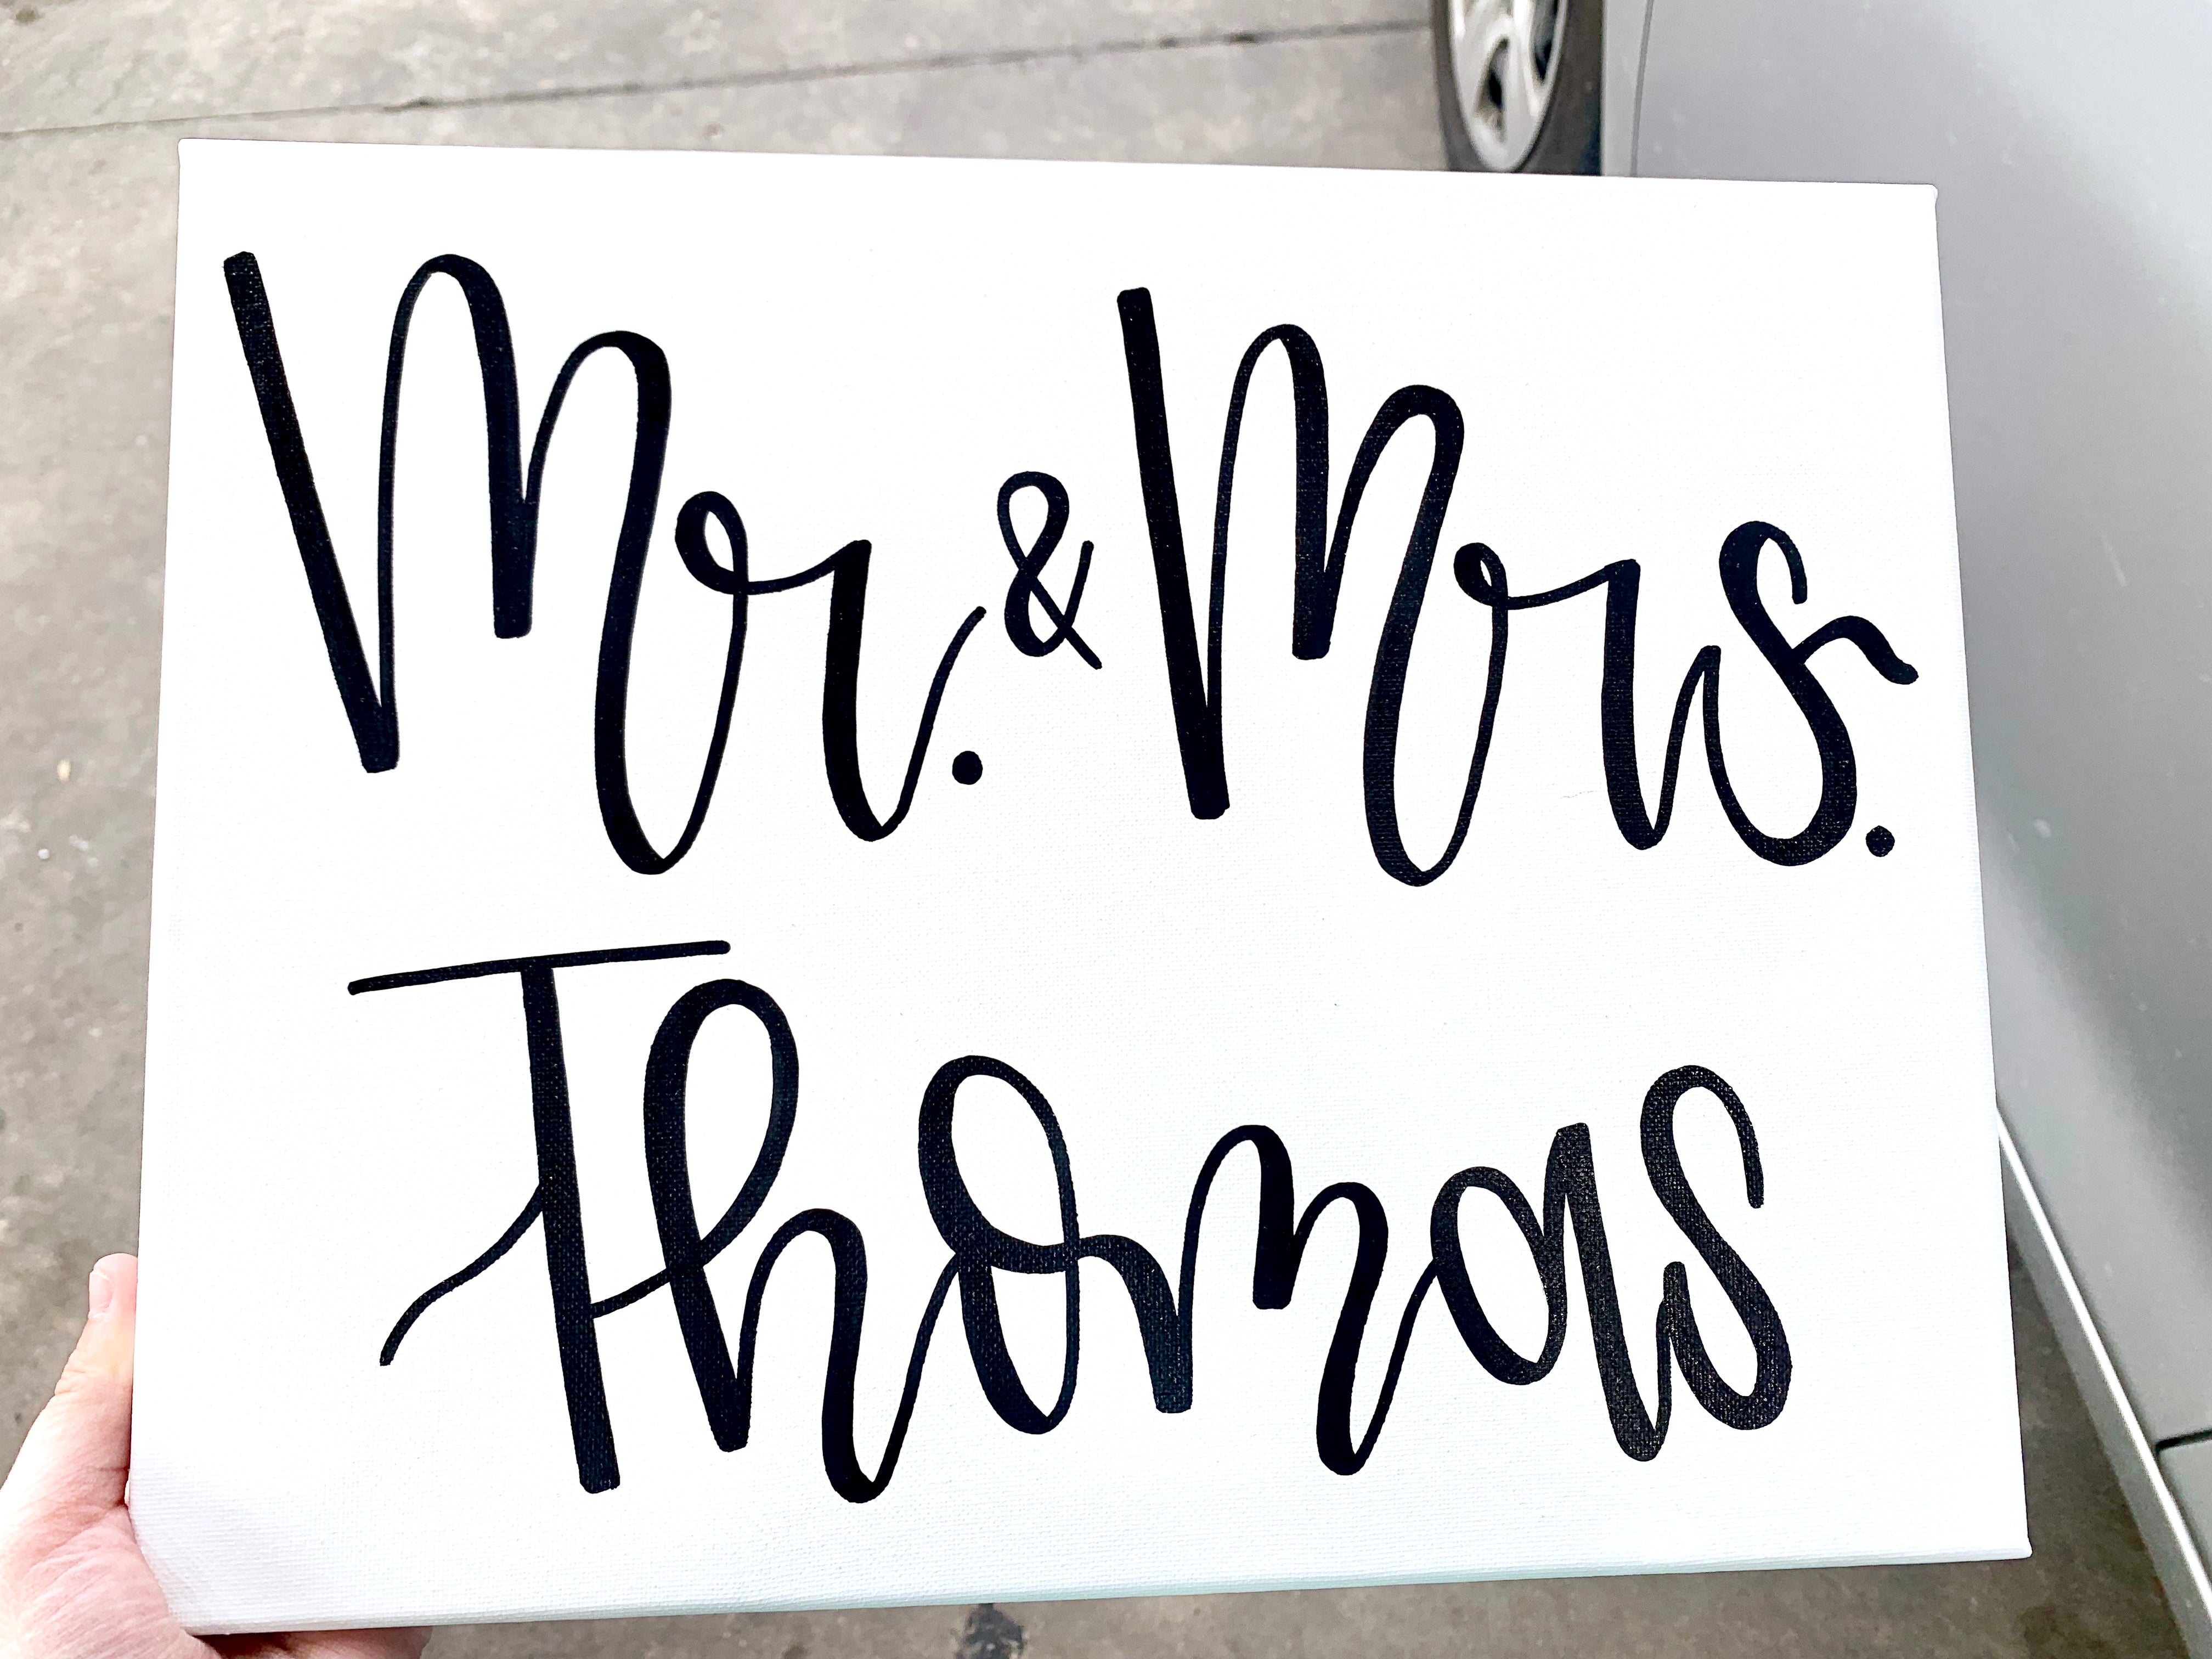 Mr. & Mrs.
Thomas